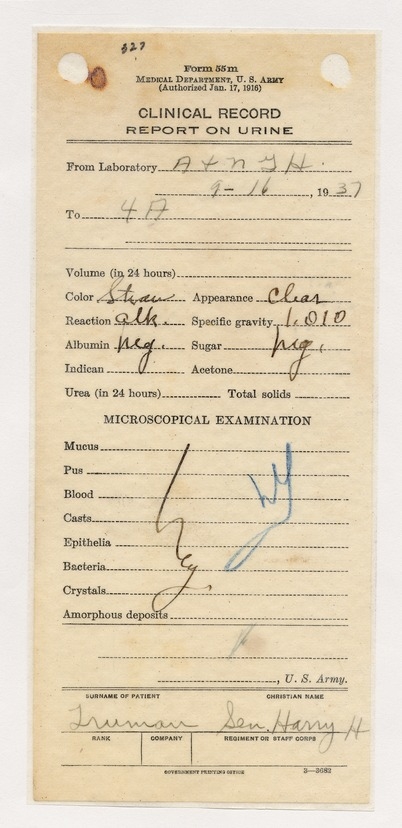 327
Form 55m
MEDICAL DEPARTMENT, U. S. ARMY
(Authorized Jan. 17, 1916)
CLINICAL RECORD
REPORT ON URINE
From Laboratory A + N G H.
9-16, 1937
To 4A
Volume (in 24 hours)
Color Straw Appearance Clear
Reaction alk. Specific gravity 1.010
Albumin neg. Sugar neg.
Indican Acetone
Urea (in 24 hours) Total solids
MICROSCOPICAL EXAMINATION
Mucus
Pus
Blood
Casts
Epithelia
Bacteria
Crystals
Amorphous deposits
, U. S. Army.
SURNAME OF PATIENT CHRISTIAN NAME
Truman Sen. Harry H
RANK COMPANY REGIMENT OR STAFF CORPS
GOVERNMENT PRINTING OFFICE 3—3682